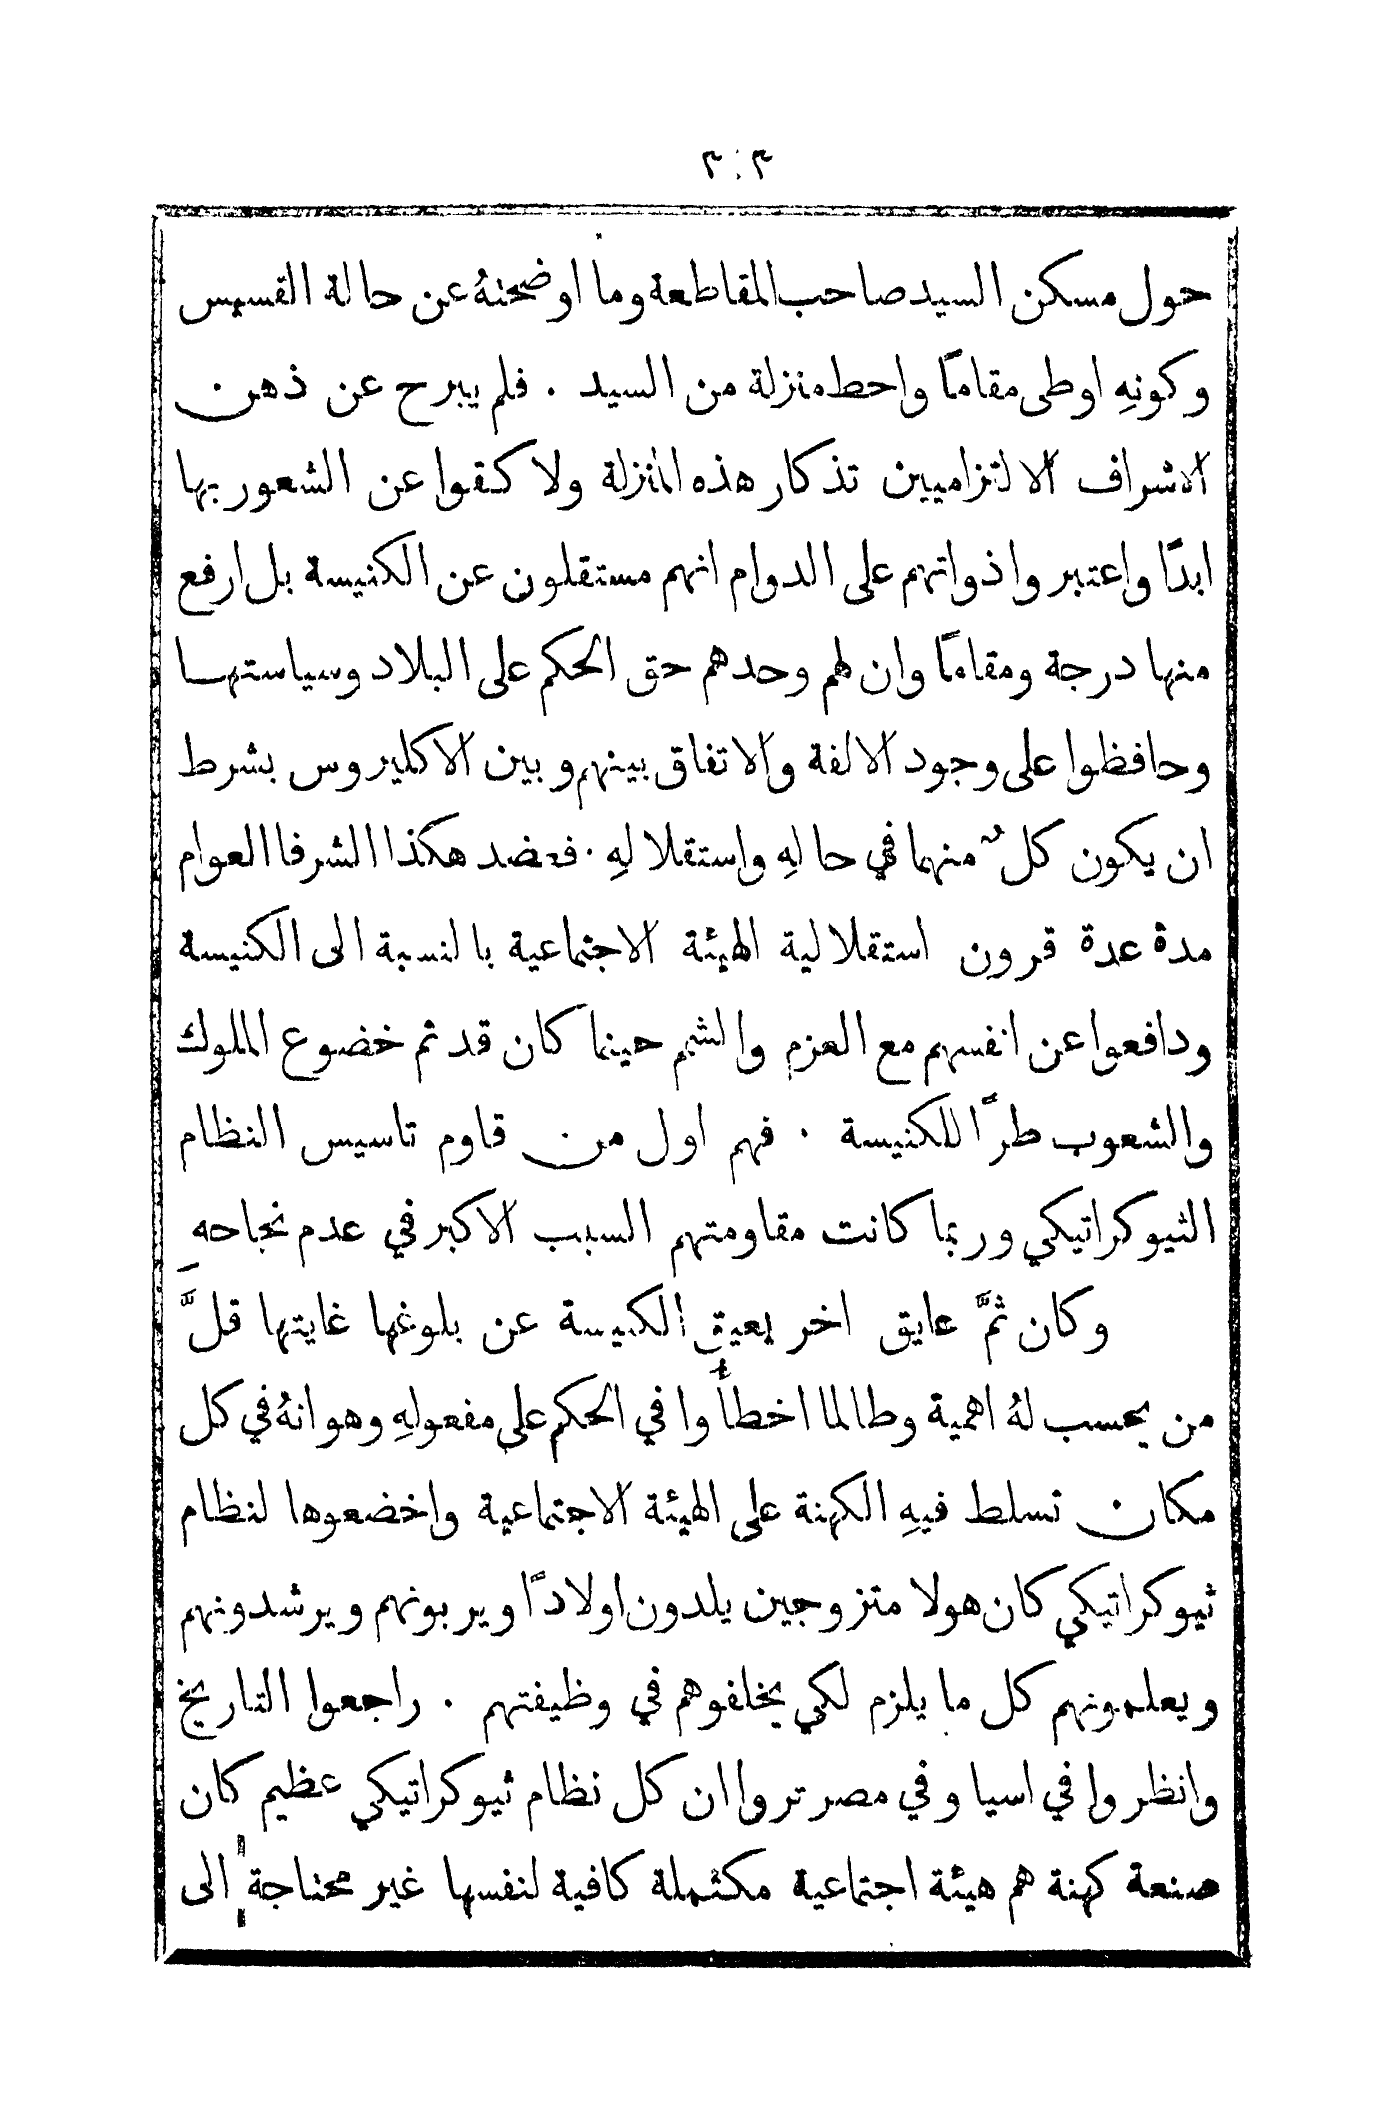 ٣٠٣
حول مسكن السيد صاحب المقاطعة وما اوضحتهُ عن حالة القسيس
وكونهِ اوطى مقامًا واحط منزلة من السيد . فلم يبرح عن ذهن
الاشراف الالتزاميين تذكار هذه المنزلة ولا كفوا عن الشعور بها
ابدًا واعتبروا ذواتهم على الدوام انهم مستقلون عن الكنيسة بل ارفع
منها درجة ومقامًا وان لهم وحدهم حق الحكم على البلاد وسياستها
وحافظوا على وجود الالفة والاتفاق بينهم وبين الاكليروس بشرط
ان يكون كلٌ منهما في حالهِ واستقلالهِ . فعضد هكذا الشرفا العوام
مدة عدة قرون استقلالية الهيئة الاجتماعية بالنسبة الى الكنيسة
ودافعوا عن انفسهم مع العزم والشمم حينما كان قد تم خضوع الملوك
والشعوب طرًا للكنيسة . فهم اول من قاوم تاسيس النظام
الثيوكراتيكي وربما كانت مقاومتهم السبب الاكبر في عدم نجاحهِ
وكان ثمَّ عايق اخر يعيق الكنيسة عن بلوغها غايتها قلَّ
من يحسب لهُ اهمية وطالما اخطأوا في الحكم على مفعولهِ وهو انهُ في كل
مكان تسلط فيهِ الكهنة على الهيئة الاجتماعية واخضعوها لنظام
ثيوكراتيكي كان هولا متزوجين يلدون اولادًا ويربونهم ويرشدونهم
ويعلمونهم كل ما يلزم لكي يخلفوهم في وظيفتهم . راجعوا التاريخ
وانظروا في اسيا وفي مصر تروا ان كل نظام ثيوكراتيكي عظيم كان
صنعة كهنة هم هيئة اجتماعية مكتملة كافية لنفسها غير محتاجة الى